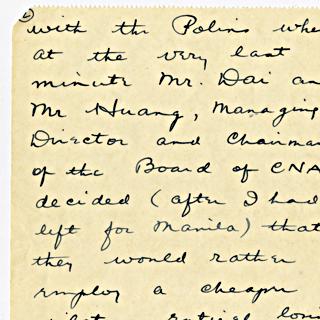 with the Polins whe
at the very last
minute Mr. Dai an
Mr Huang, Managing
Director and Chairma
of the Board of CNA
decided (after I had
left for Manila) that
they would rather
employ a cheaper